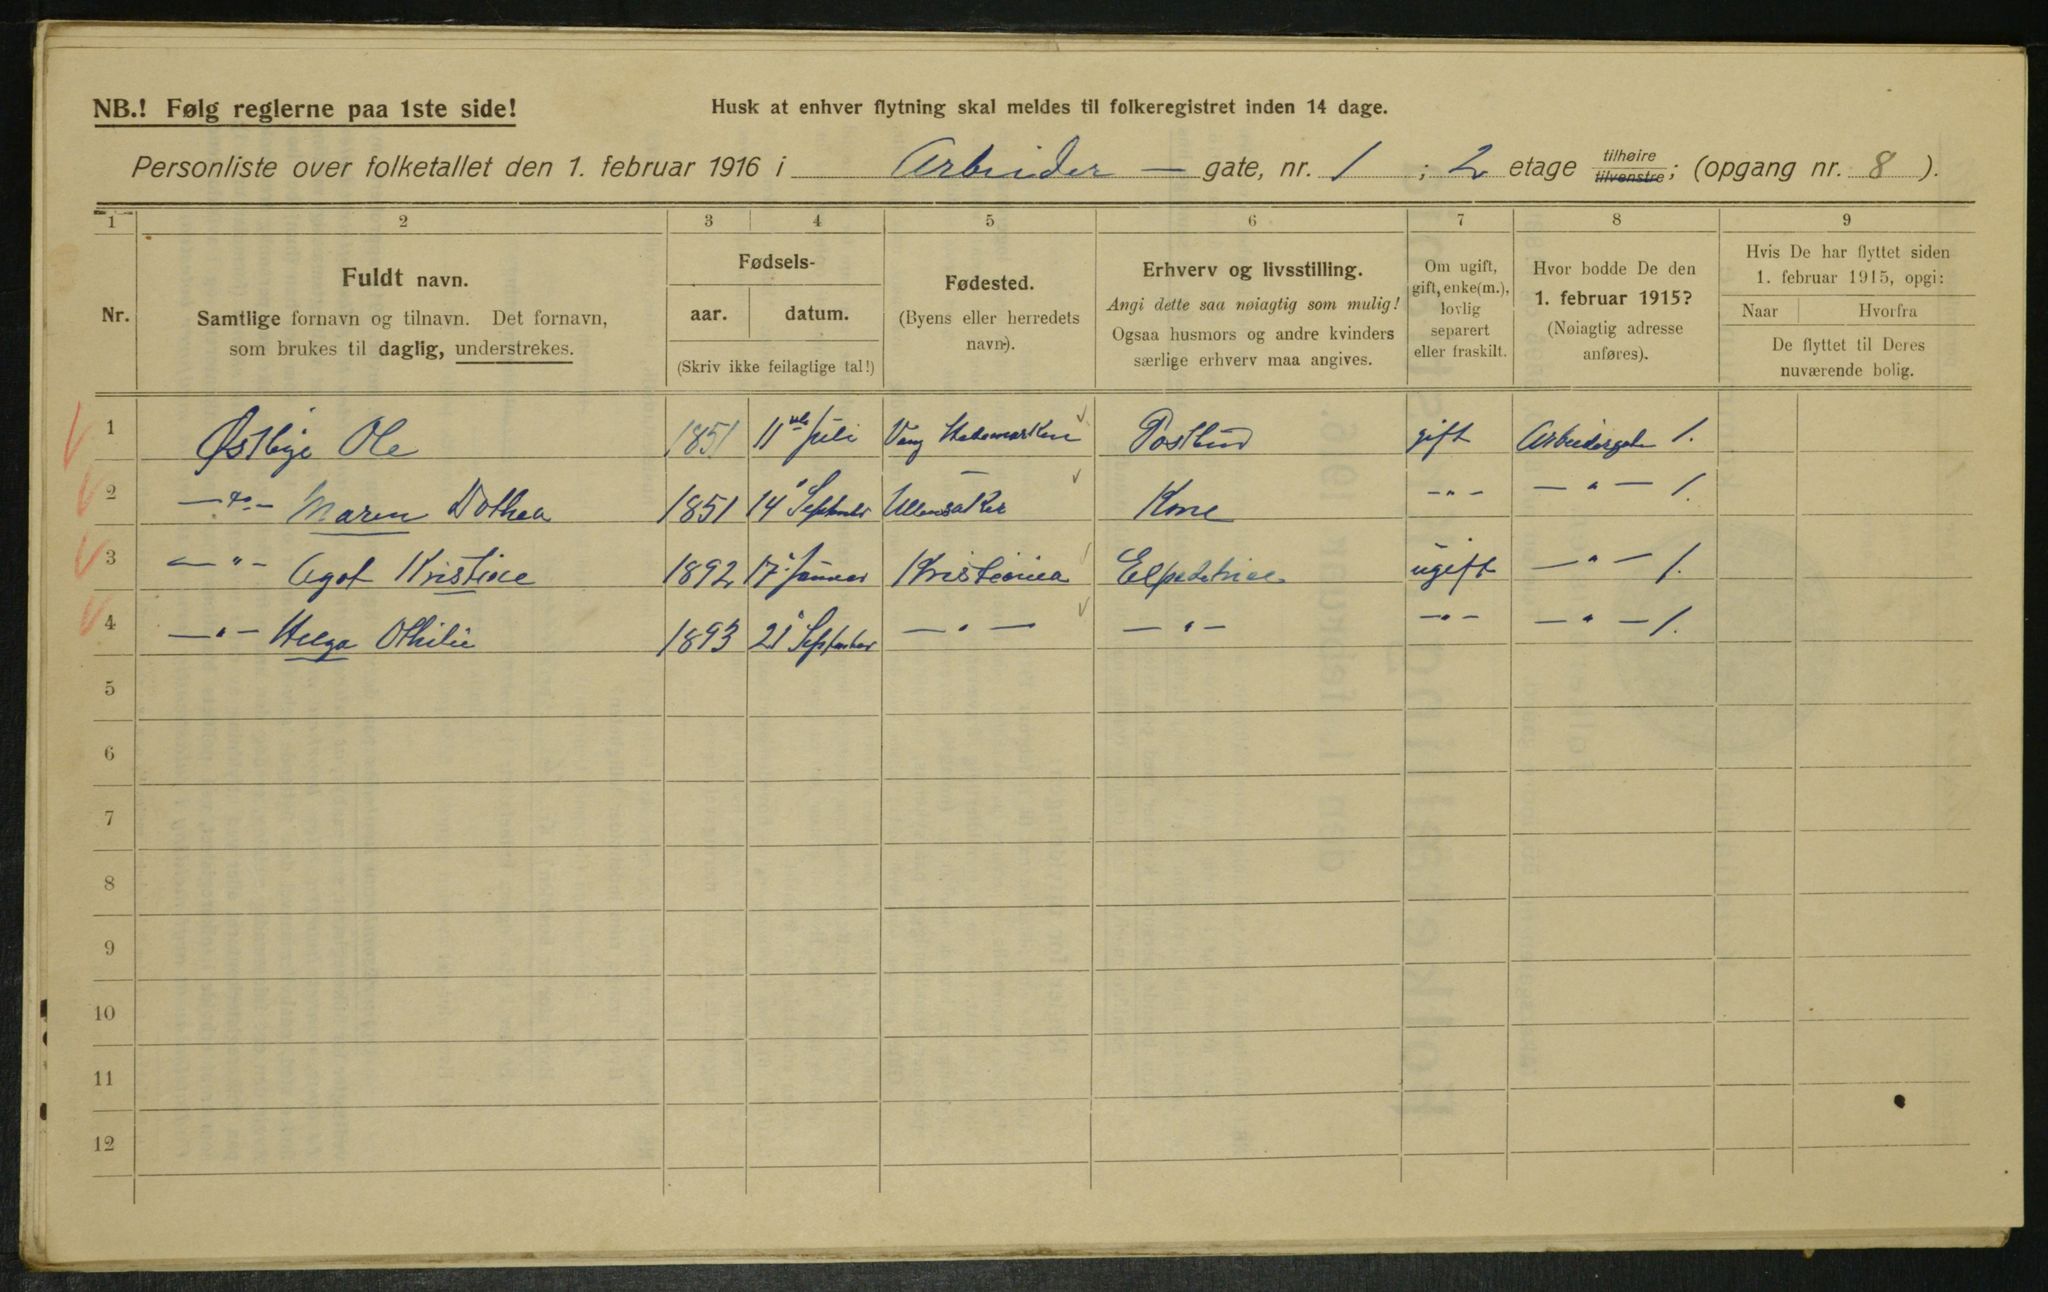 NB.! Følg reglerne paa 1ste side!
Husk at enhver flytning skal meldes til folkeregistret inden 14 dage.
Personliste over folketallet den 1. februar 1916 i Arbeider — gate, nr. 1 ; 2 etage tilhøire tilvenstre; (opgang nr. 8 ).
1 2 3 4 5 6 7 8 9
Nr.
Fuldt navn.
Samtlige fornavn og tilnavn. Det fornavn,
som brukes til daglig, understrekes.
Fødsels-
aar. datum.
(Skriv ikke feilagtige tal!)
Fødested.
(Byens eller herredets
navn.)
Erhverv og livsstilling.
Angi dette saa nøiagtig som mulig!
Ogsaa husmors og andre kvinders
særlige erhverv maa angives.
Om ugift,
gift, enke(m.),
lovlig
separert
eller fraskilt.
Hvor bodde De den
1. februar 1915?
(Nøiagtig adresse
anføres).
Hvis De har flyttet siden
1. februar 1915, opgi:
Naar Hvorfra
De flyttet til Deres
nuværende bolig.
1 Østbye Ole 1851 11 Juli Vang Hedemarken Postbud gift Arbeidergata 1.
2 — do — Maren Dothea 1851 14 September Ullensaker Kone — " — — " — 1.
3 — " — Agot Kristine 1892 17 Januar Kristiania Expeditrice ugift — " — 1.
4 — " — Helga Othilie 1893 21 September — " — — " — — " — — " — 1.
5
6
7
8
9
10
11
12